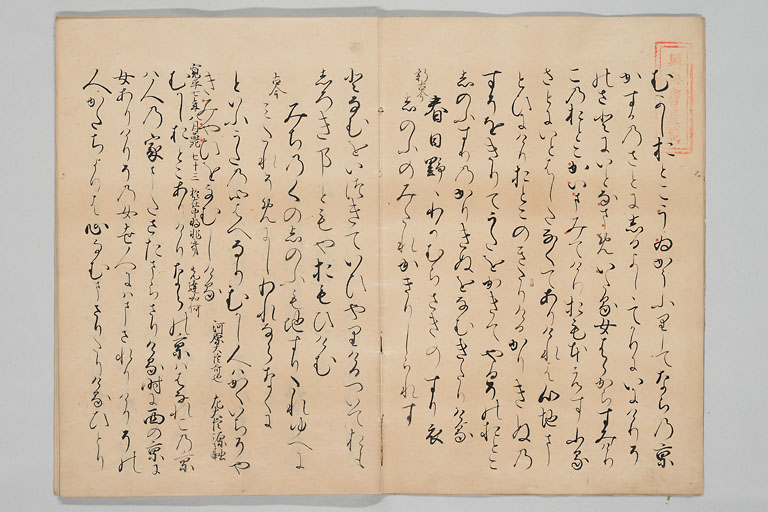 むかしおとこうゐかうふりしてならの京
かすかのさとにしるよしゝてかりにいにけりそ
のさとにいとなまめいたる女はらからすみけり
このおとこかいまみてけりおもほえすふる
さとにいとはしたなくてありけれは心地ま
とひにけりおとこのきたりけるかりきぬの
すそをきりてうたをかきてやるそのおとこ
しのふすりのかりきぬをなむきたりける
新古今
春日野のわかむらさきのすり衣
しのふのみたれかきりしられす
となむをいつきていひやりけるついておも
しろきことゝもや おもひけむ
みちのくのしのふもちすりたれゆへに
古今
みたれそめにしわれならなくに
といふうたの心はへなりむかし人はかくいちはや
きみやひをなむしける
河原大臣哥也 左大臣源融
寛平七年八月薨七十三
むかしおとこありけりならの京ははなれこの京
は人の家またさたまらさりける時に西の京に
女ありけりその女世人にはまされりけりその
人かたちよりは心なむまさりたりけるひとり